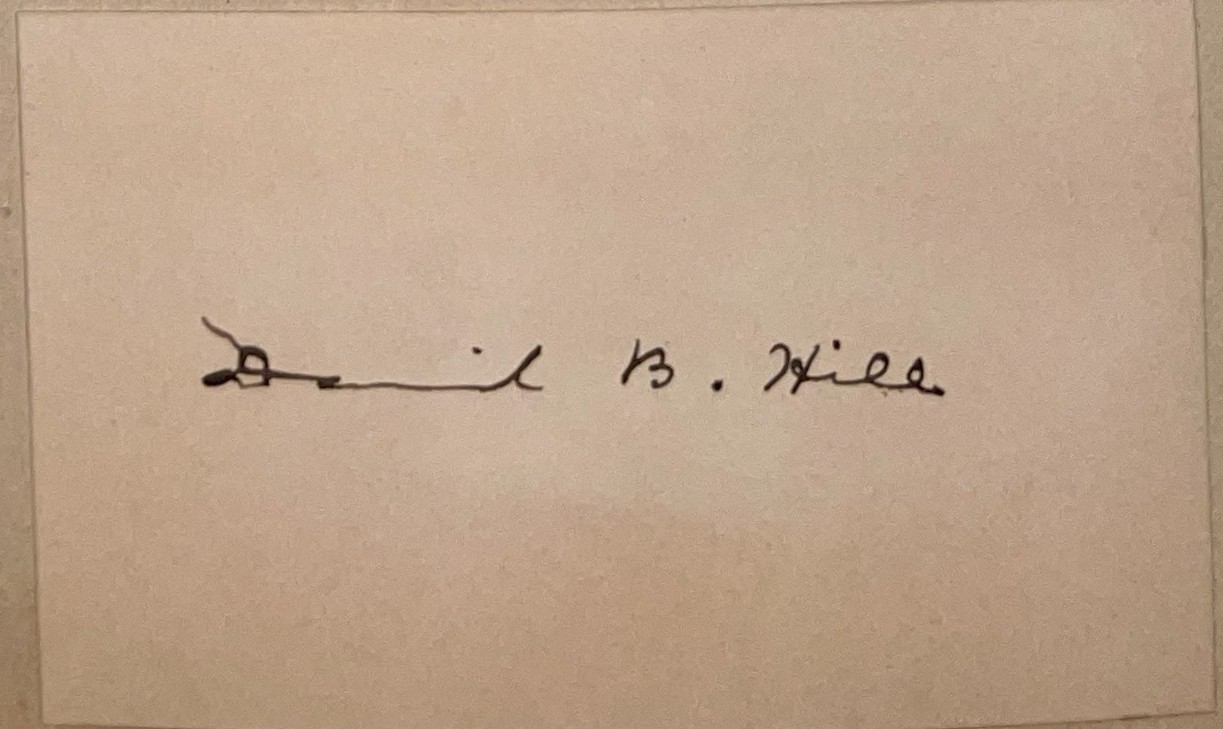 David B. Hill